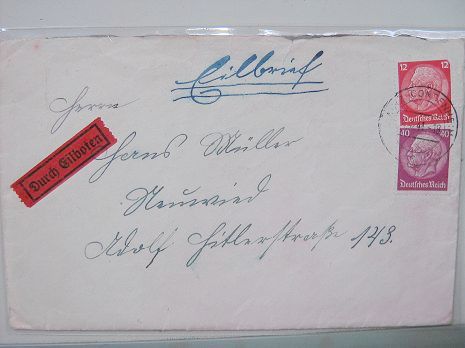 Eilbrief
12 12
Deutsches Reich
Herrn
40 40
Deutsches Reich
Durch Eilboten
Hans Müller
Neuwied
Adolf Hitlerstraße 143.